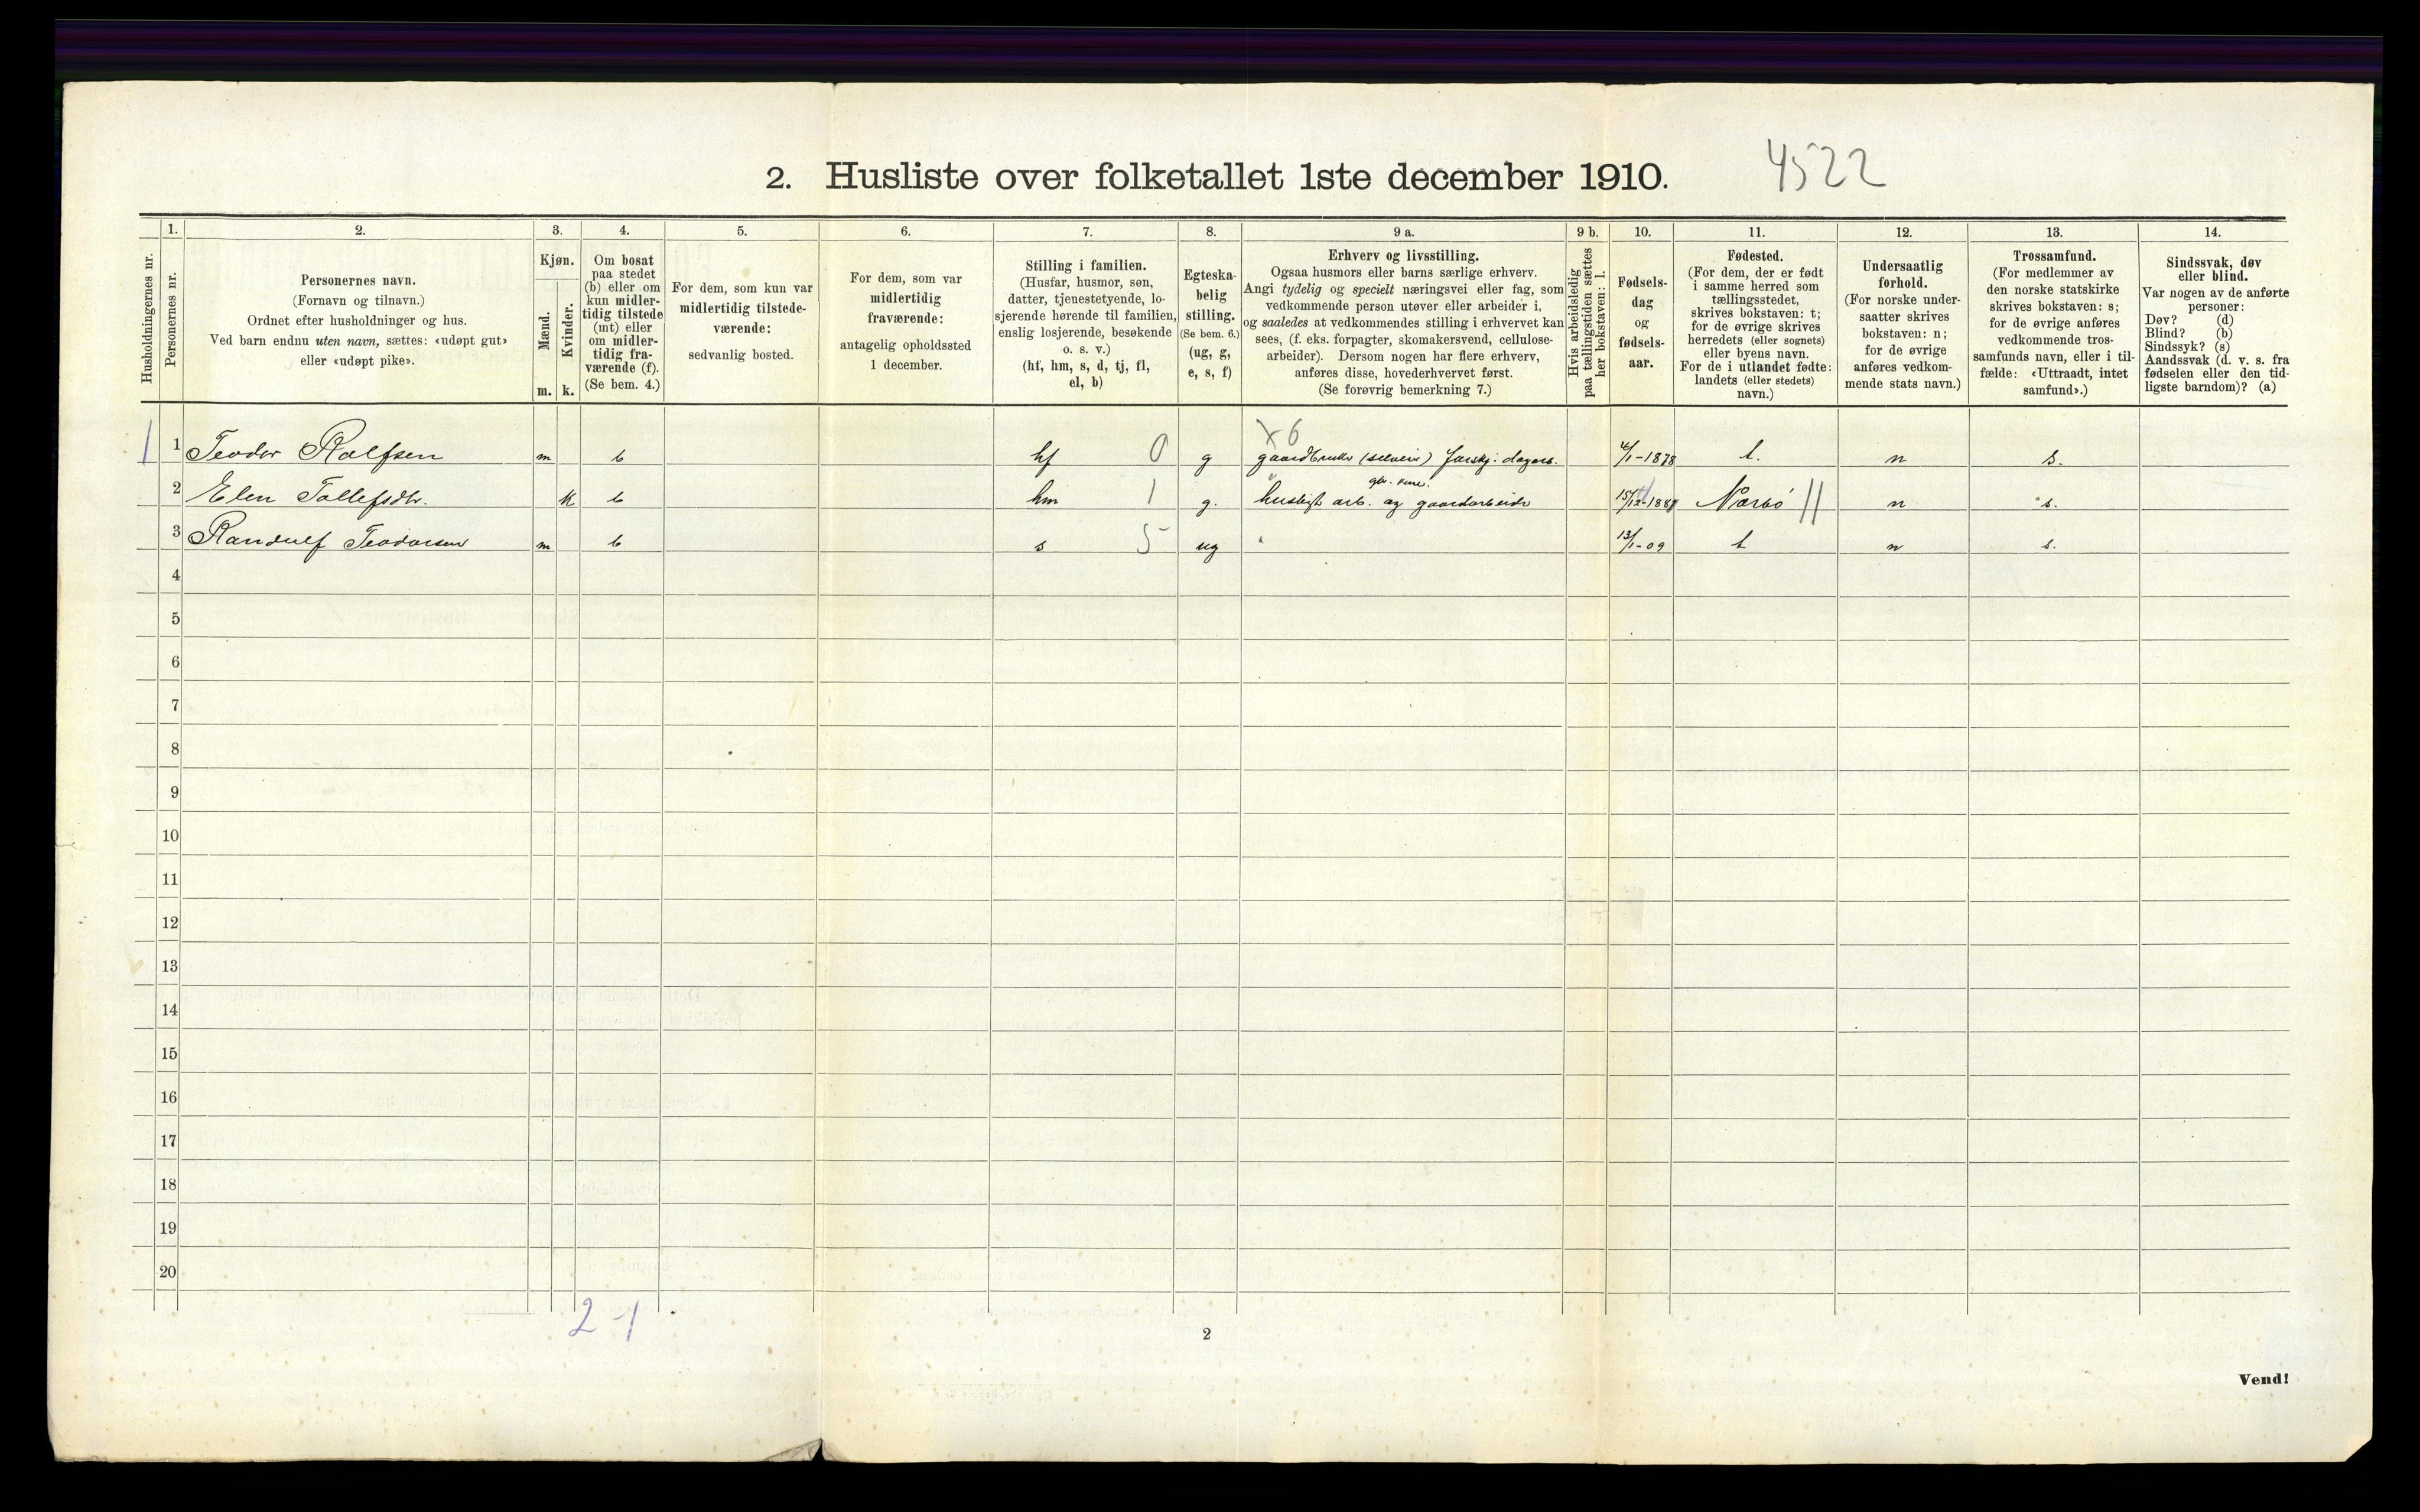 2. Husliste over folketallet 1ste december 1910. 4522
Husholdningernes nr.
1.
Personernes nr.
2.
Personernes navn.
(Fornavn og tilnavn.)
Ordnet efter husholdninger og hus.
Ved barn endnu uten navn, sættes: «udøpt gut»
eller «udøpt pike».
3.
Kjøn.
Mænd.
m.
Kvinder.
k.
4.
Om bosat
paa stedet
(b) eller om
kun midler-
tidig tilstede
(mt) eller
om midler-
tidig fra-
værende (f).
(Se bem. 4.)
5.
For dem, som kun var
midlertidig tilstede-
værende:
sedvanlig bosted.
6.
For dem, som var
midlertidig
fraværende:
antagelig opholdssted
1 december.
7.
Stilling i familien.
(Husfar, husmor, søn,
datter, tjenestetyende, lo-
sjerende hørende til familien,
enslig losjerende, besøkende
o. s. v.)
(hf, hm, s, d, tj, fl,
el, b)
8.
Egteska-
belig
stilling.
(Se bem. 6.)
(ug, g,
e, s, f)
9 a.
Erhverv og livsstilling.
Ogsaa husmors eller barns særlige erhverv.
Angi tydelig og specielt næringsvei eller fag, som
vedkommende person utøver eller arbeider i,
og saaledes at vedkommendes stilling i erhvervet kan
sees, (f. eks. forpagter, skomakersvend, cellulose-
arbeider). Dersom nogen har flere erhverv,
anføres disse, hovederhvervet først.
(Se forøvrig bemerkning 7.)
9 b.
Hvis arbeidsledig
paa tællingstiden sættes
her bokstaven: l.
10.
Fødsels-
dag
og
fødsels-
aar.
11.
Fødested.
(For dem, der er født
i samme herred som
tællingsstedet,
skrives bokstaven: t;
for de øvrige skrives
herredets (eller sognets)
eller byens navn.
For de i utlandet fødte:
landets (eller stedets)
navn.)
12.
Undersaatlig
forhold.
(For norske under-
saatter skrives
bokstaven: n;
for de øvrige
anføres vedkom-
mende stats navn.)
13.
Trossamfund.
(For medlemmer av
den norske statskirke
skrives bokstaven: s;
for de øvrige anføres
vedkommende tros-
samfunds navn, eller i til-
fælde: «Uttraadt, intet
samfund».)
14.
Sindssvak, døv
eller blind.
Var nogen av de anførte
personer:
Døv? (d)
Blind? (b)
Sindssyk? (s)
Aandssvak (d. v. s. fra
fødselen eller den tid-
ligste barndom)? (a)
x 6
1 1 Teodor Rolfsen m b hf 0 g gaardbruker (selveier) 4/1-1878 t. n s.
2 Elen Tollefsdtr. k b hm 1 g. husligt arb. og gaardarbeide Nærbö n s.
3 Randulf Teodorsen m b s 5 ug 13/1-09 t n s.
4
5
6
7
8
9
10
11
12
13
14
15
16
17
18
19
20
2-1
2
Vend!